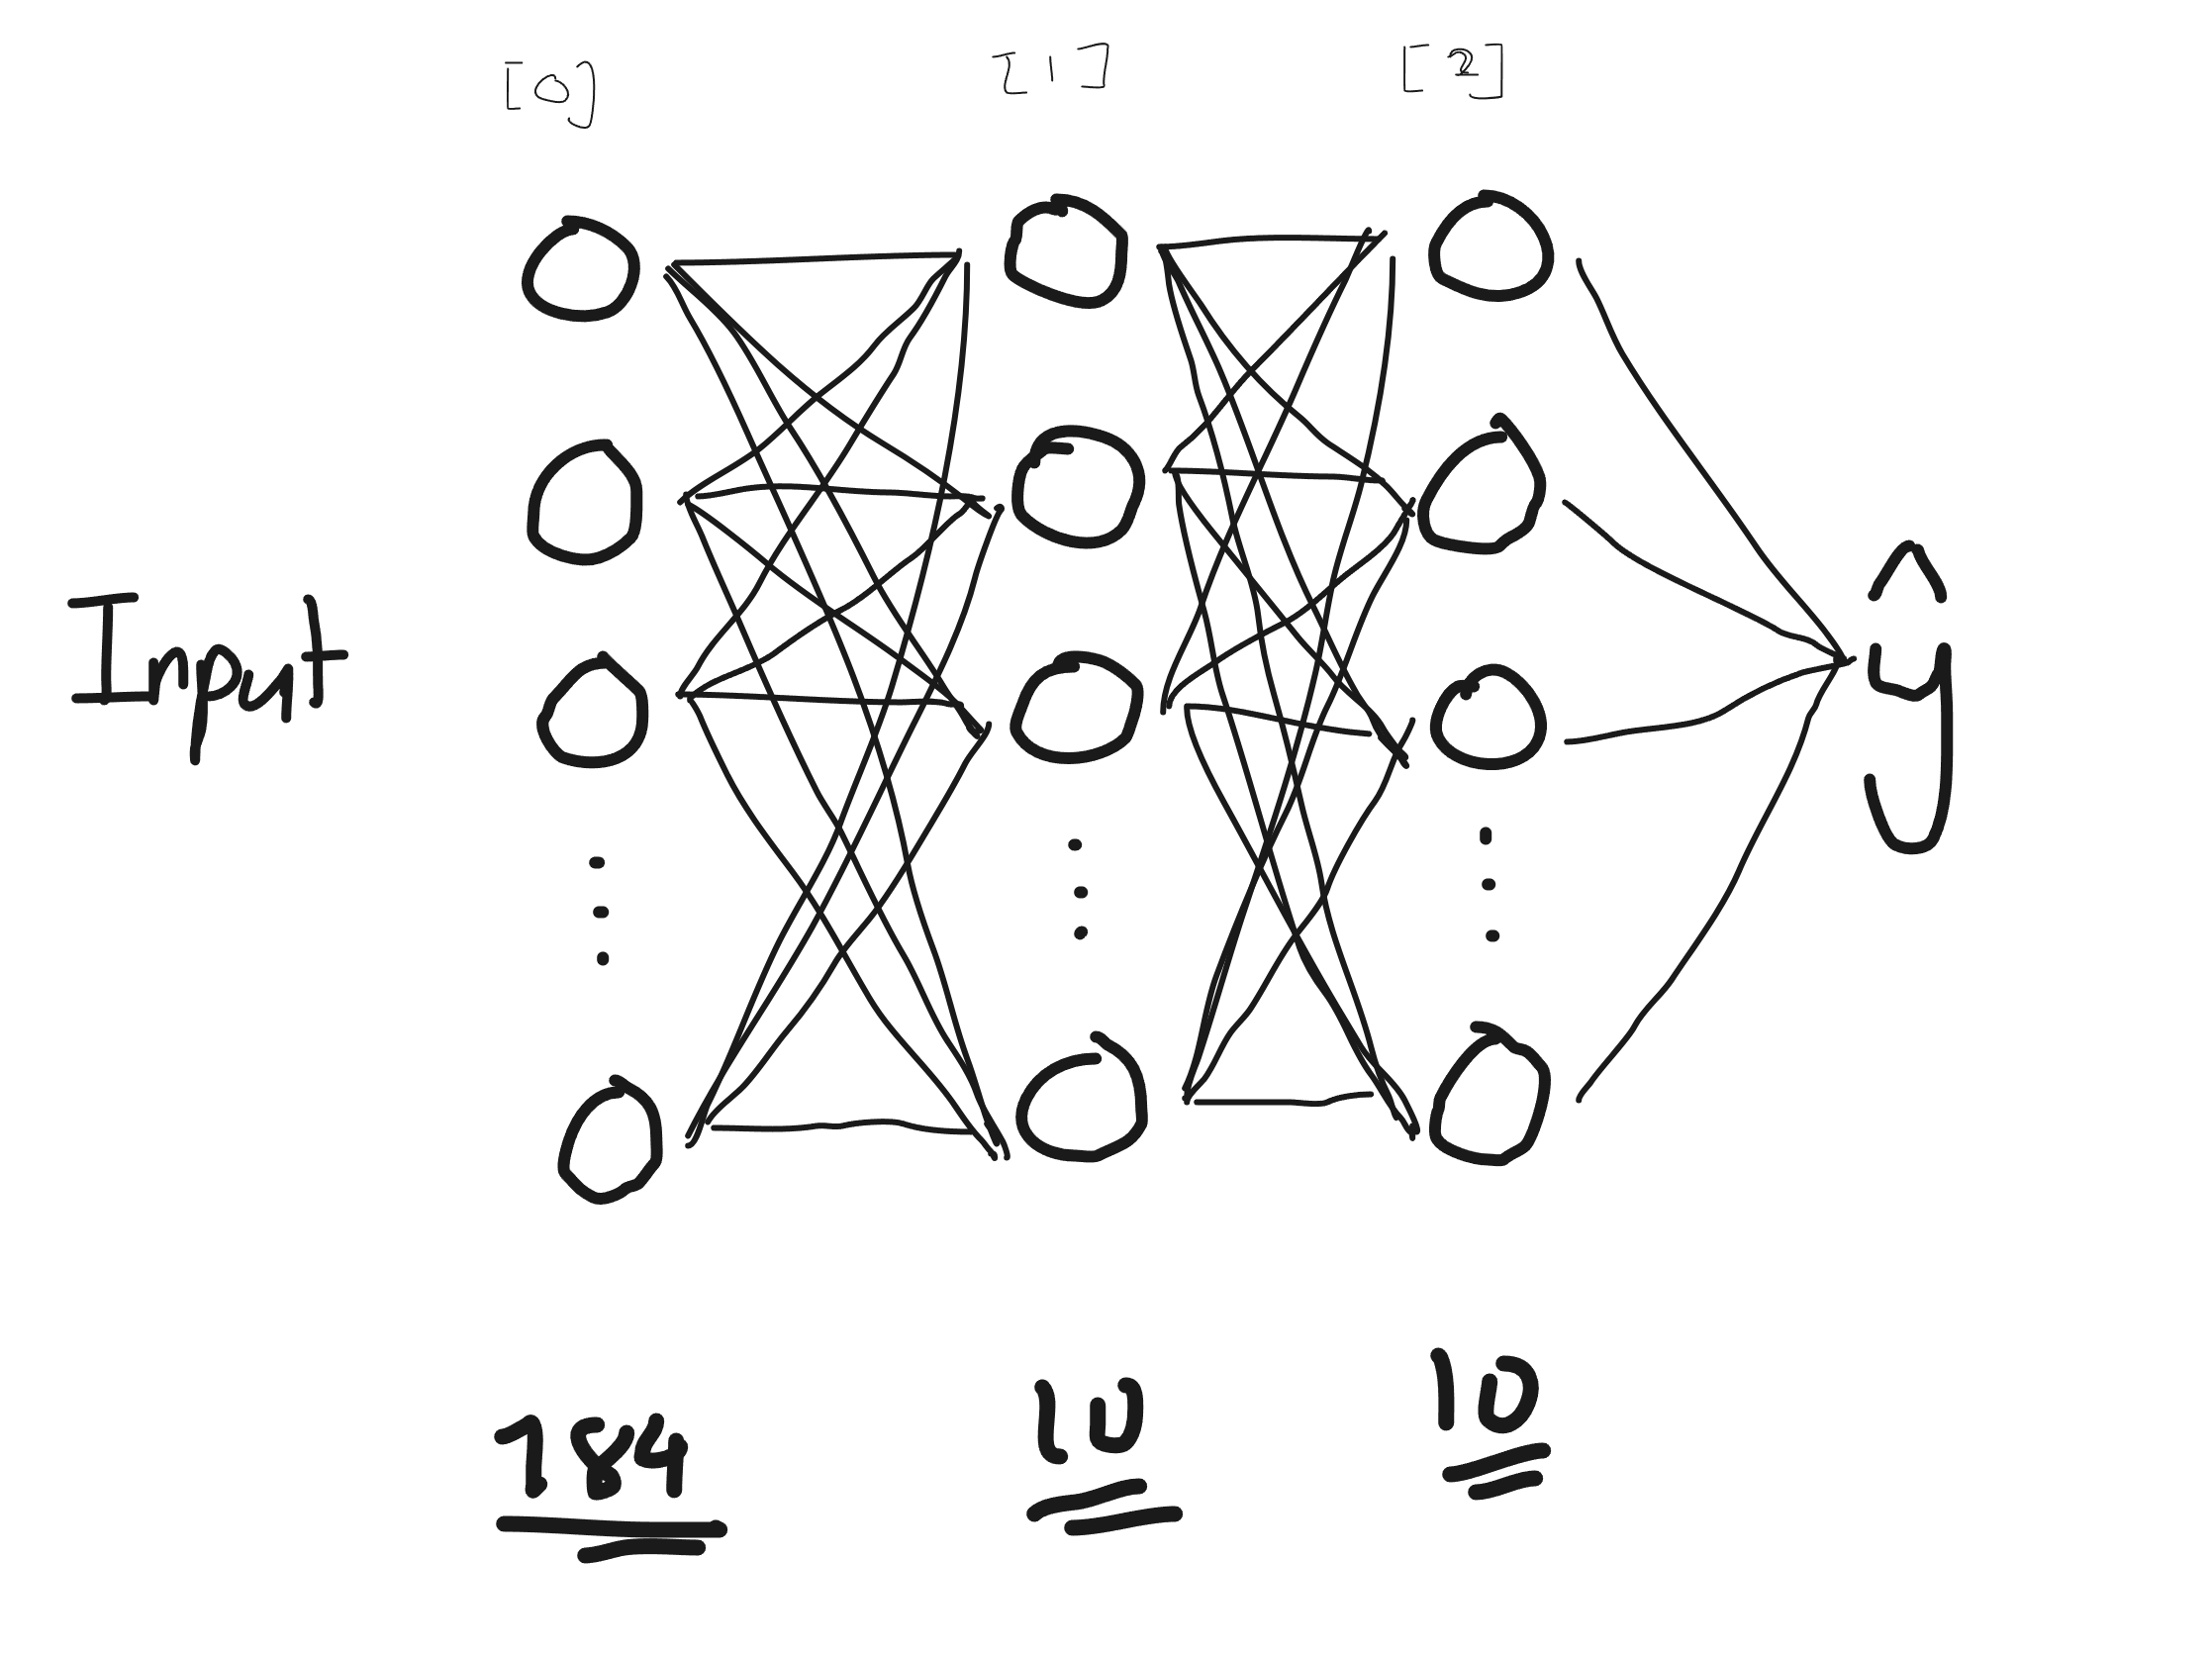 [0] [1] [2]
Input
ŷ
784 10 10